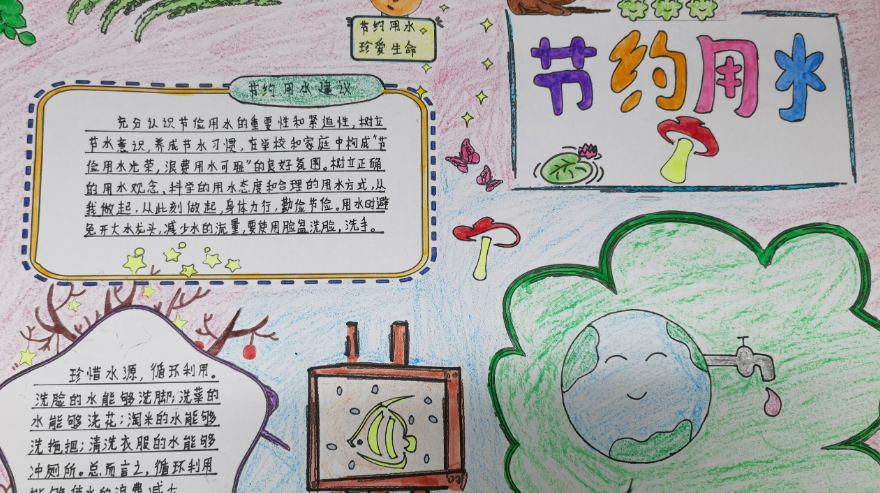 节约用水
珍爱生命
节约用水
节约用水建议
充分认识节俭用水的重要性和紧迫性，树立
节水意识，养成节水习惯，在学校和家庭中构成“节
俭用水光荣，浪费用水可耻”的良好氛围。树立正确
的用水观念、科学的用水态度和合理的用水方式，从
我做起，从此刻做起，身体力行，勤俭节俭。用水时避
免开大水龙头，减少水的流量，要使用脸盆洗脸，洗手。
珍惜水源，循环利用。
洗脸的水能够洗脚；洗菜的
水能够浇花；淘米的水能够
洗拖把；清洗衣服的水能够
冲厕所。总而言之，循环利用
能够使水的浪费减